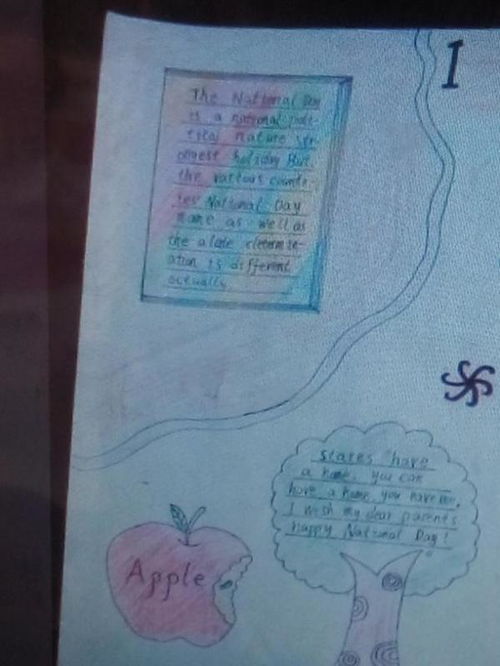 The National Day
is a national poli-
tical nature str-
ongest holiday But
the various countr-
ies' National Day
name as well as
the a late determin-
ation is different
actually
I
States have
a home, you can
have a home, you have me,
I wish my dear parents
happy National Day!
Apple